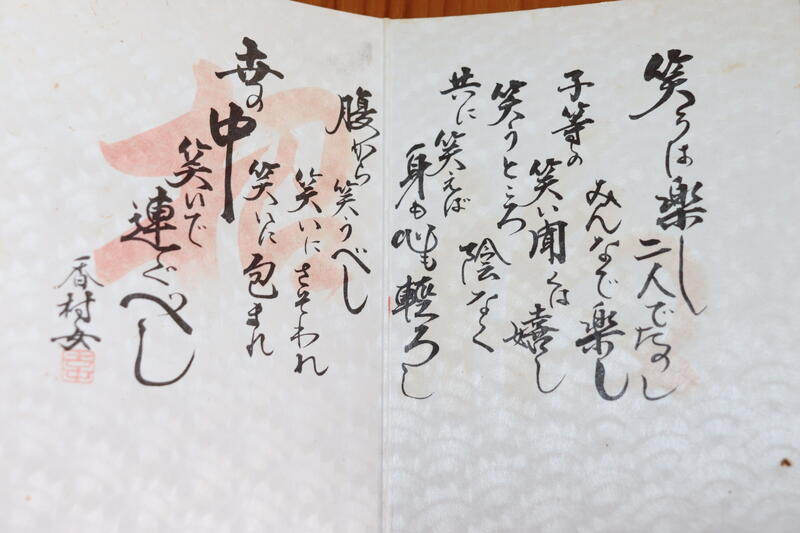 笑うは楽し
二人でたのし
みんなで楽し
子等の笑い聞くは嬉し
笑うところ陰なく
共に笑えば
身も心も軽ろし
腹から笑うべし
笑いにさそわれ
笑いに包まれ
世の中
笑いで
連ぐべし
香村女